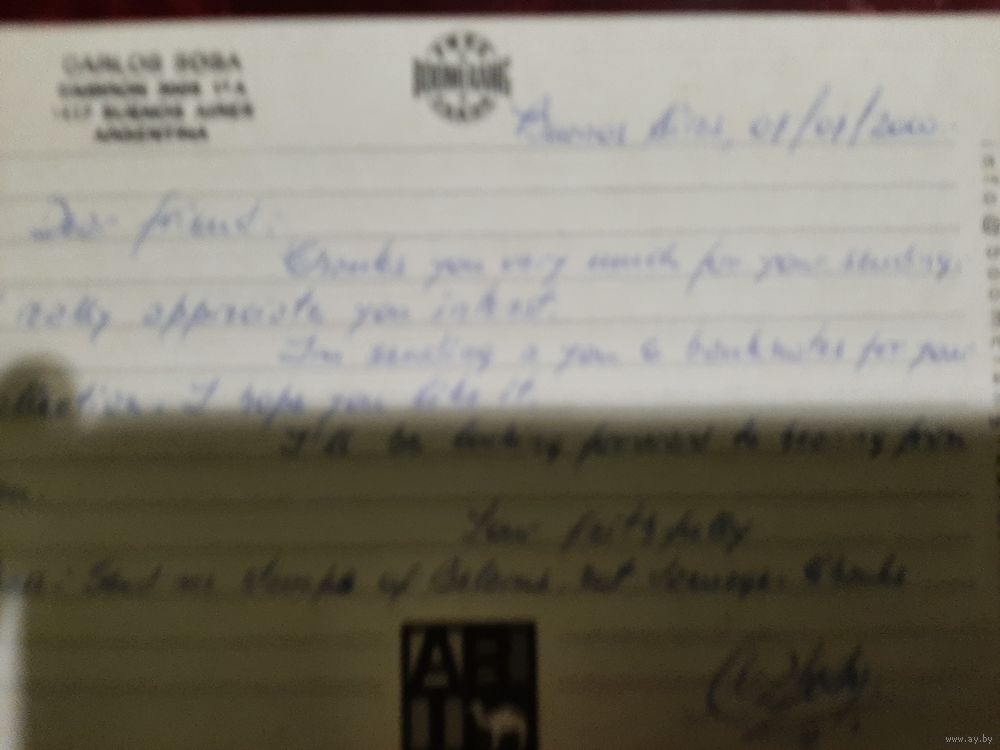 CARLOS SOSA
BUENOS AIRES
ARGENTINA
BOOMERANG
Buenos Aires, 01/01/2000
Dear friend:
Thanks you very much for your sending.
I really appreciate you interest.
I'm sending a you 6 banknotes for your
collection. I hope you like it.
I'll be looking forward to hearing from
you.
Your faithfully
Send me stamps of Belarus, but Thanks
www.ay.by